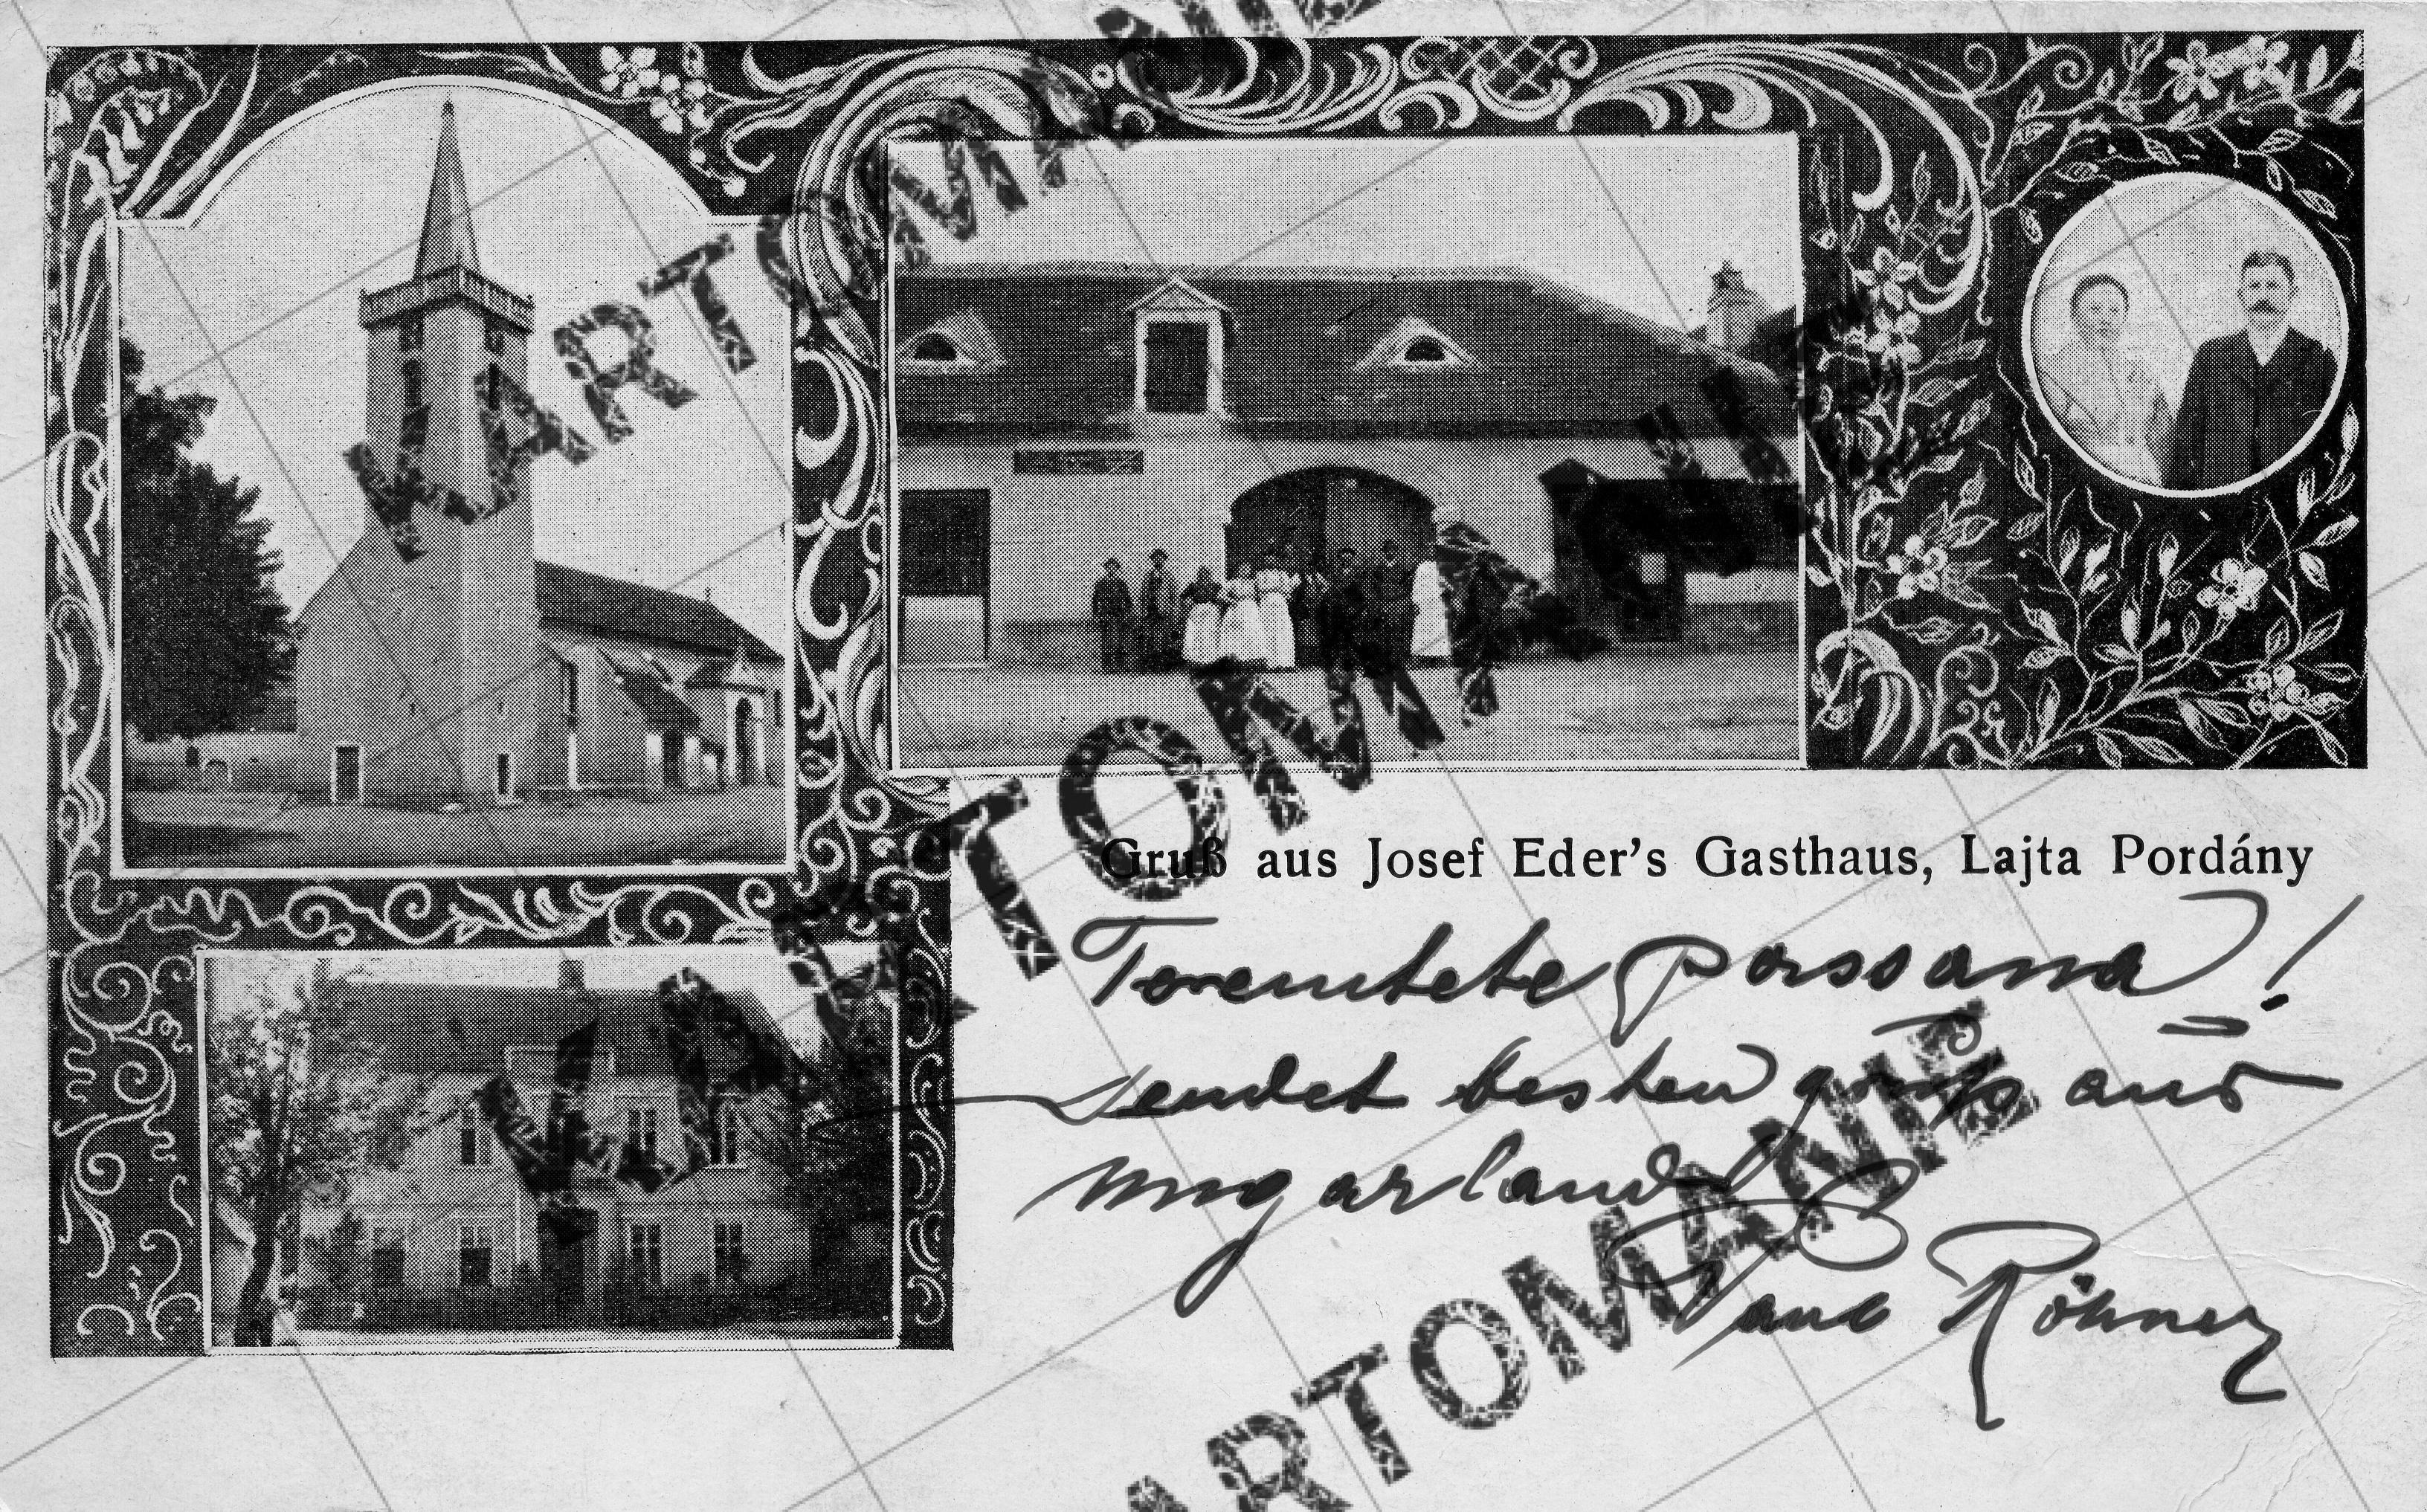 Gruß aus Josef Eder's Gasthaus, Lajta Pordány
sendet besten gruß aus
ungarland
Röhner
KARTOMANIE
KARTOMANIE
KARTOMANIE